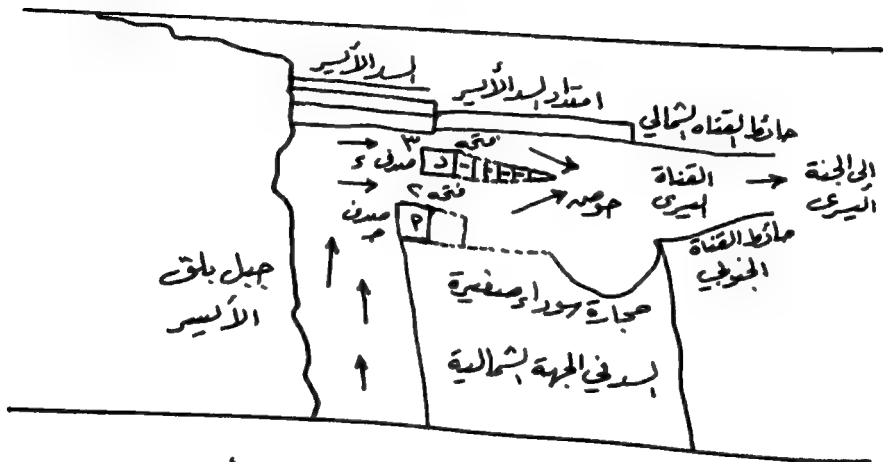 السد الأيسر
امتداد السد الأيسر
حائط القناه الشمالي
فتحه ٣
صدف ء
د
فتحه ٢
صدف
ج
م
حوض
القناة
اليسرى
الى الجنة
اليسرى
حائط القناة
الجنوبي
جبل بلق
الأيسر
حجارة سوداء صغيرة
السد في الجهة الشمالية